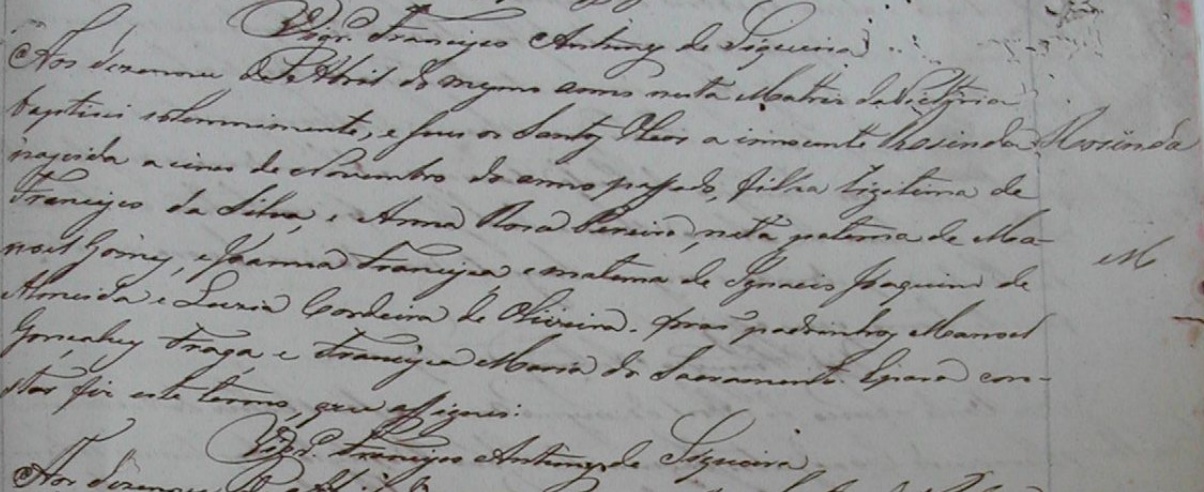 Vigr.º Francisco Antunes de Siqueira
Aos dezenove de Abril do mesmo anno nesta Matriz da Victoria
baptisei solemnimente, e pus os Santos Oleos a innocente Rosinda Rosinda
nascida a cinco de Novembro do anno passado, filha legitima de
Francisco da Silva, e Anna Rosa Pereira, neta paterna de Ma-
noel Gomes, e Joanna Francisca e materna de Ignacio Joaquim de M
Almeida e Luzia Cordeira de Oliveira. foraõ padrinhos Manoel
Gonçalves Fraga e Francisca Maria do Sacramento. E para cons-
star fiz este termo, que assignei:
Vigr.º Francisco Antunes de Siqueira
Aos dezenove de Abril